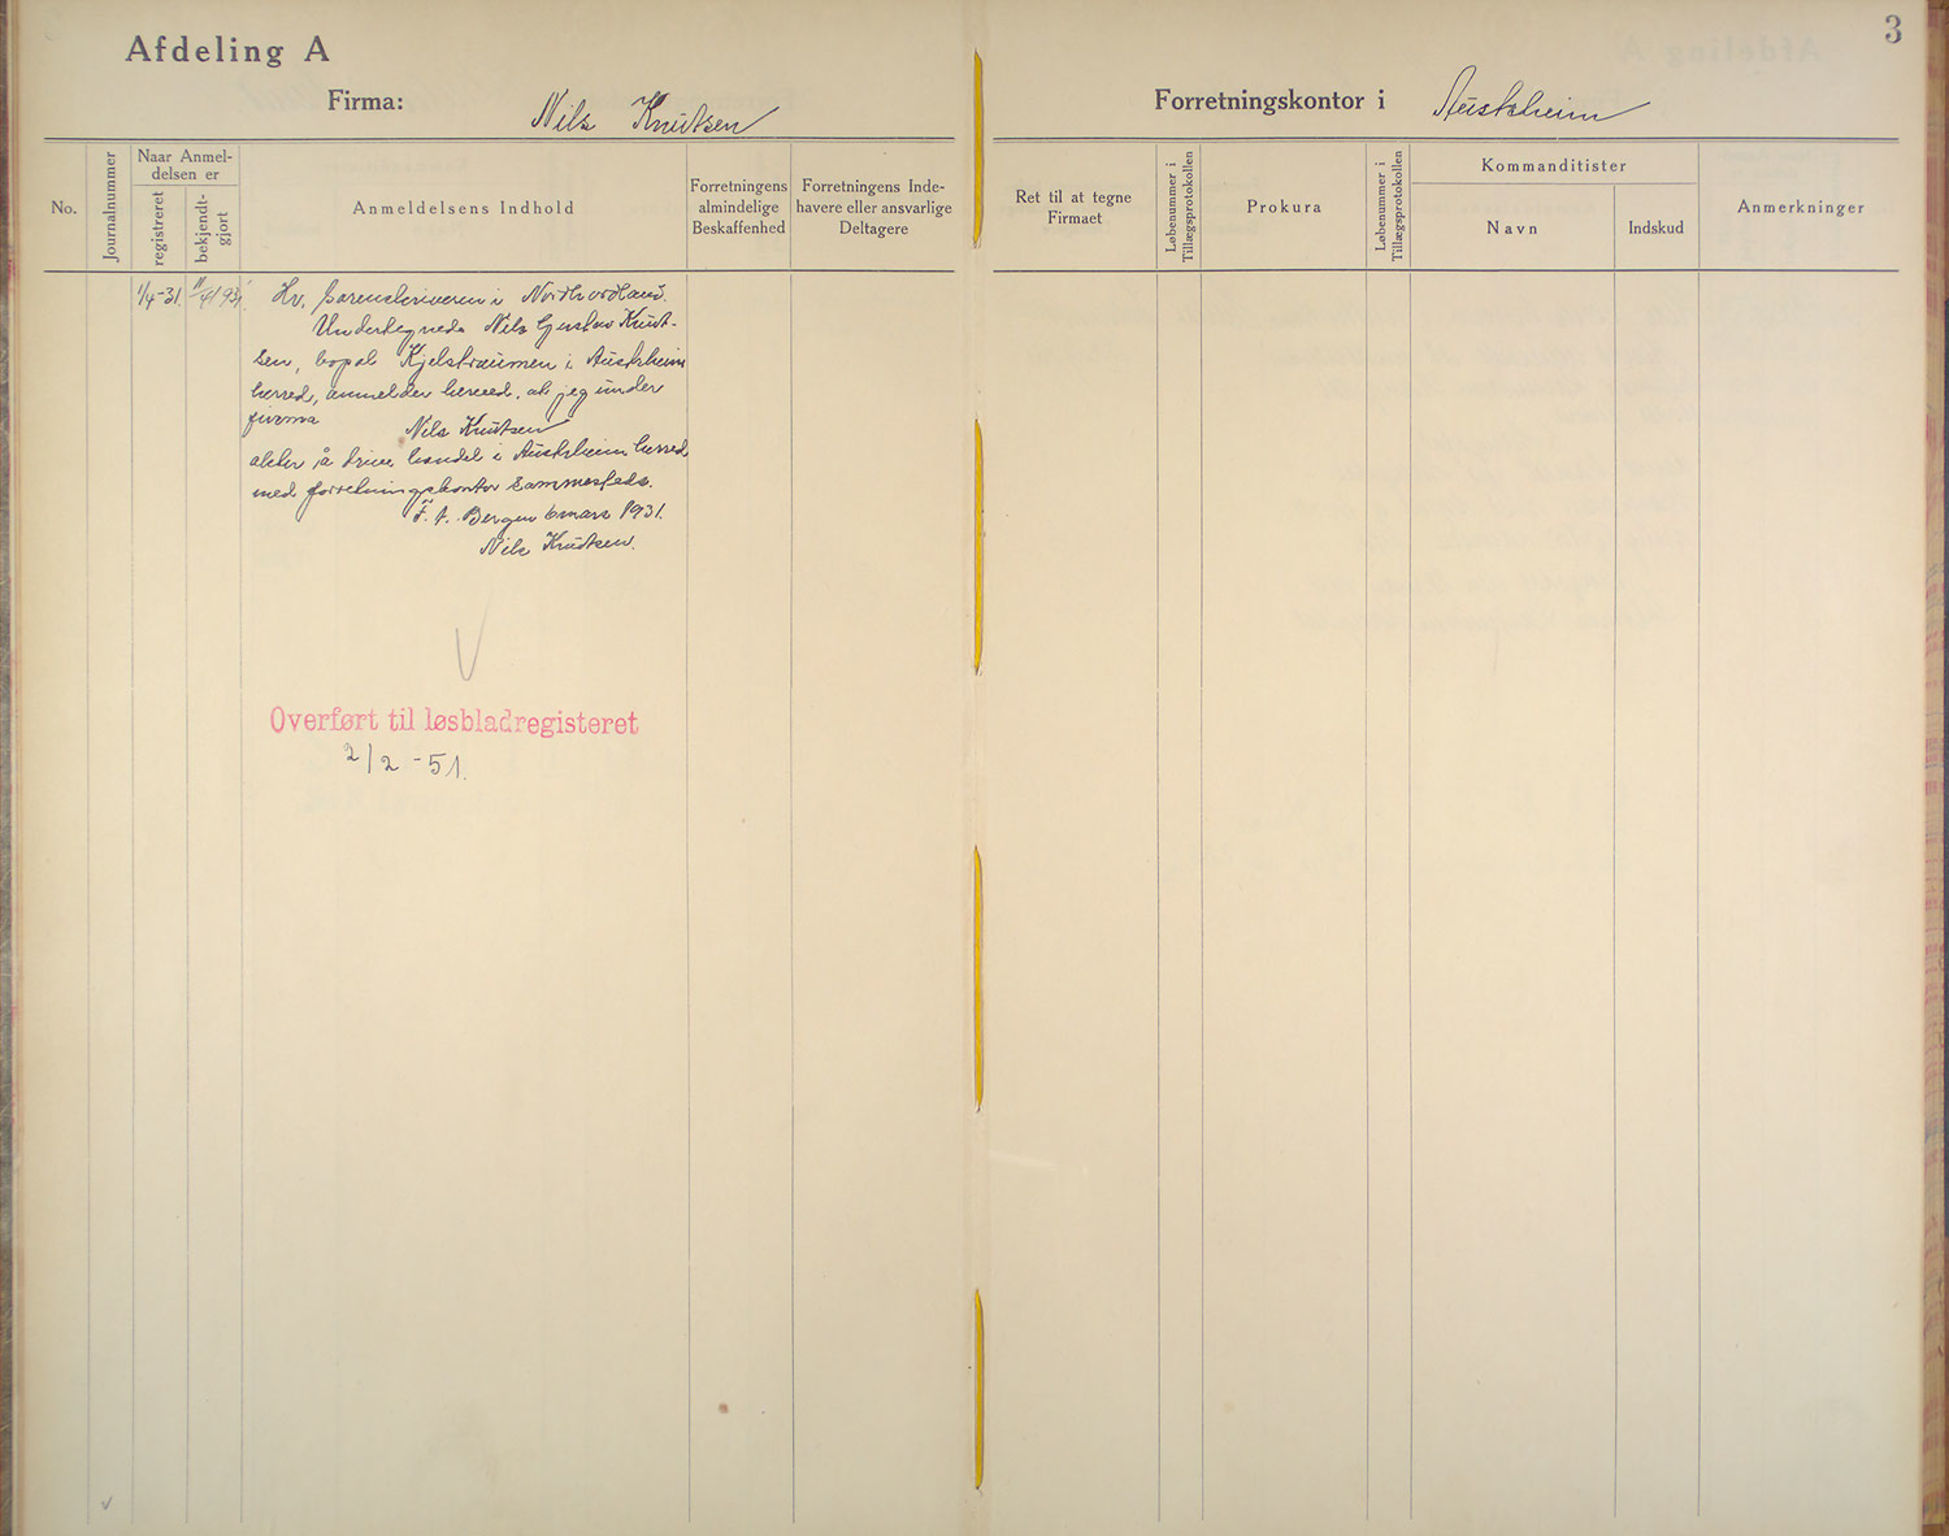 3
Afdeling A
Firma: Nils Knutsen
Forretningskontor i Austrheim
No.
Journalnummer
Naar Anmel-
delsen er
registreret
bekjendt-
gjort
Anmeldelsens Indhold
Forretningens
almindelige
Beskaffenhed
Forretningens Inde-
havere eller ansvarlige
Deltagere
Ret til at tegne
Firmaet
Løbenummer i
Tillægsprotokollen
Prokura
Løbenummer i
Tillægsprotokollen
Kommanditister
Navn
Indskud
Anmerkninger
1/4-31. 11/4 1931.
Hr. sorenskriveren i Nordhordland.
Undertegnede Nils Gustav Knut-
sen, bopæl Kjelstraumen i Austrheim
herred, anmelder herved, at jeg under
firma
Nils Knutsen
akter å drive handel i Austrheim herred
med forretningskontor sammesteds.
F. t. Bergen 6 mars 1931.
Nils Knutsen.
Overført til løsbladregisteret
2/2-51.